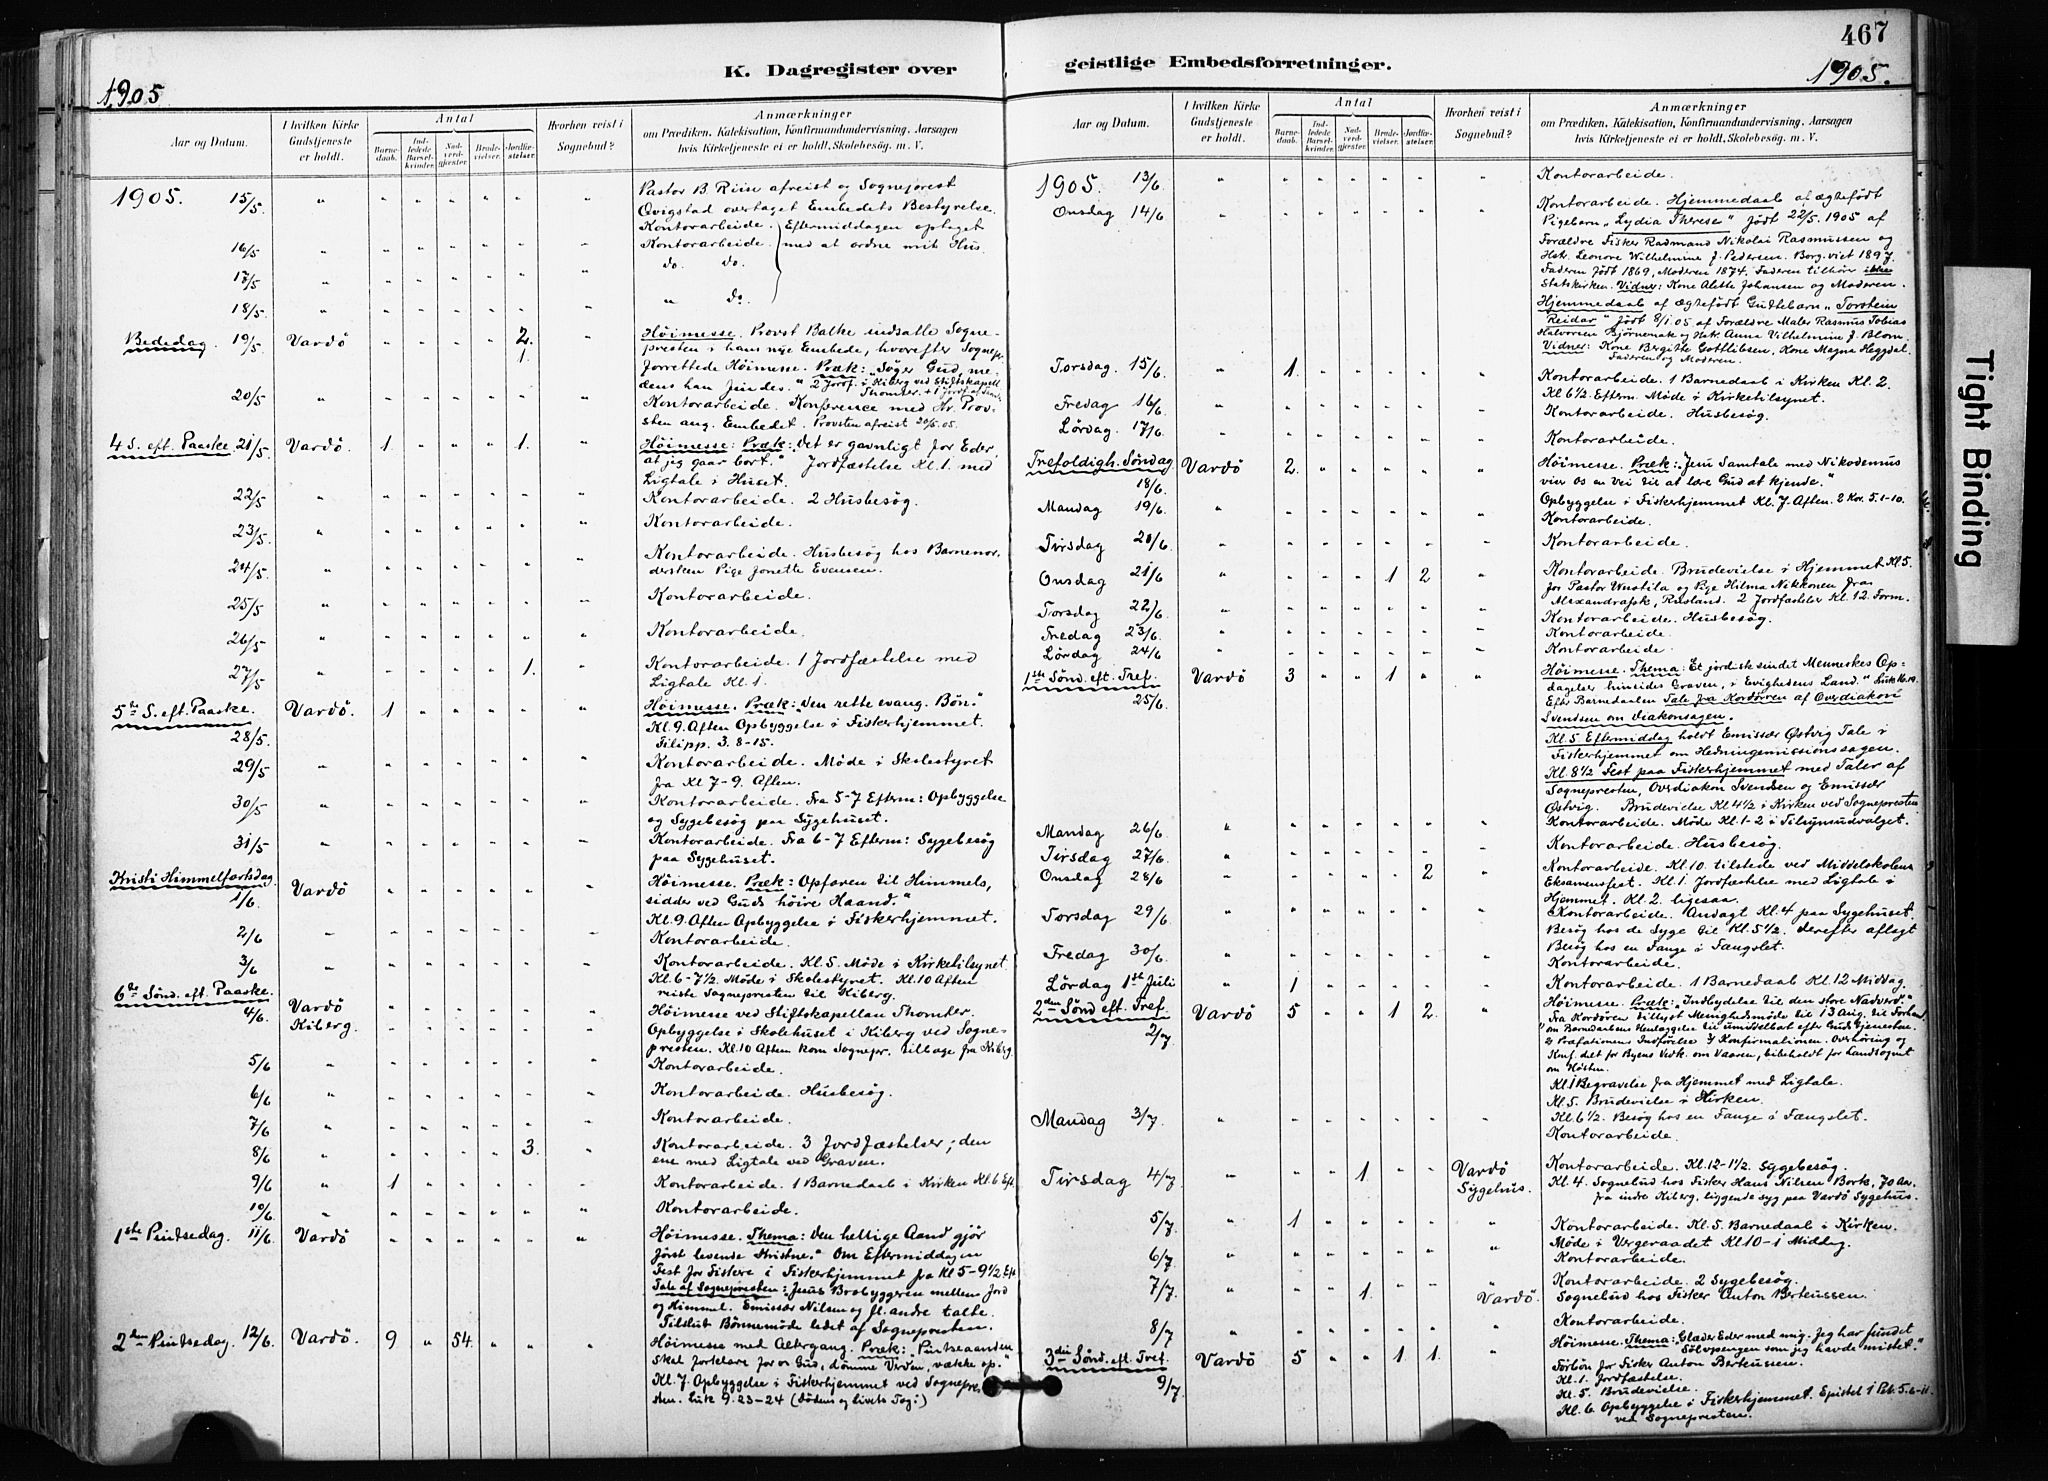 467
K. Dagregister over geistlige Embedsforretninger.
1905
1905.
Aar og Datum.
I hvilken Kirke Gudstjeneste er holdt.
Antal
Barnedaab.
Indledede Barselkvinder.
Nadverdgjæster.
Brudevielser.
Jordfæstelser.
Hvorhen reist i Sognebud?
Anmærkninger
om Prædiken, Katekisation, Konfirmandundervisning, Aarsagen
hvis Kirketjeneste ei er holdt, Skolebesøg. m. V.
1905. 15/5 Pastor B. Riise afreist og Sogneprest
Qvigstad overtaget Embedets Bestyrelse.
Kontorarbeide. Eftermiddagen optaget
16/5 Kontorarbeide. med at ordne mit Hus.
17/5 do. do.
18/5 " do.
Bededag 19/5 Vardö 2. Höimesse. Provst Balke indsatte Sogne-
1. presten i hans nye Embede, hvorefter Sognepr.
forrettede Höimesse. Præk: "Søger Gud, me-
dens han findes." 2 Jordf. i Kiberg ved Stiftskapell.
20/5 Kontorarbeide. Konference med Hr. Prov-
sten ang. Embedet. Provsten afreist 20/5.05.
4 S. eft. Paaske 21/5 Vardö. 1 1. Höimesse: Præk: "Det er gavnligt for Eder,
at jeg gaar bort." Jordfæstelse Kl. 1. med
Ligtale i Huset.
22/5 Kontorarbeide. 2 Husbesøg.
23/5 Kontorarbeide.
24/5 Kontorarbeide. Husbesøg hos Barnemor-
dersken Pige Jonette Evensen.
25/5 Kontorarbeide.
26/5 Kontorarbeide.
27/5 1. Kontorarbeide. 1 Jordfæstelse med
Ligtale Kl. 1.
5te S. eft. Paaske. Vardö. 1 Höimesse. Præk: "Den rette evang. Bön."
28/5 Kl. 9. Aften Opbyggelse i Fiskerhjemmet.
Filipp. 3. 8-15.
29/5 Kontorarbeide. Möde i Skolestyret
fra Kl 7-9. Aften.
30/5 Kontorarbeide. Fra 5-7 Efterm: Opbyggelse
og Sygebesøg paa Sygehuset.
31/5 Kontorarbeide. Fra 6-7 Efterm: Sygebesøg
paa Sygehuset.
Kristi Himmelfartsdag
1/6. Vardö Höimesse. Præk: "Opfaren til Himmels,
sidder ved Guds höire Haand."
Kl. 9. Aften Opbyggelse i Fiskerhjemmet.
2/6 Kontorarbeide.
3/6 Kontorarbeide. Kl. 5. Möde i Kirketilsynet.
Kl. 6-7½. Möde i Skolestyret. Kl. 10 Aften
reiste Sognepresten til Kiberg.
6te Sönd. eft. Paaske.
4/6. Vardö Höimesse ved Stiftskapellan Thomter.
Kiberg. Opbyggelse i Skolehuset i Kiberg ved Sogne-
presten. Kl. 10 Aften kom Sognepr. tilbage fra Kiberg.
5/6 Kontorarbeide.
6/6 Kontorarbeide. Husbesøg.
7/6 Kontorarbeide.
8/6 3. Kontorarbeide. 3 Jordfæstelser, den
ene med Ligtale ved Graven.
9/6 1 Kontorarbeide. 1 Barnedaab i Kirken Kl. 6 Eft.
10/6 Kontorarbeide.
1ste Pintsedag. 11/6. Vardö Höimesse. Thema: "Den hellige Aand gjör
först levende Kristne." Om Eftermiddagen
Fest for Fiskere i Fiskerhjemmet fra Kl 5-9½ Eft.
Tale af Sognepresten: Jesus Brobyggeren mellem Jord
og Himmel. Emissær Nilsen og fl. andre talte.
Tilslut Bönnemöde ledet af Sognepresten.
2den Pintsedag 12/6. Vardö. 9 54 Höimesse med Altergang. Præk: "Pintseaanden
skal forklare for os Gud, dömme Verden, vække op."
Kl. 7. Opbyggelse i Fiskerhjemmet ved Sognepre-
sten. Luk 9. 23-24 (Dödens og livets Tog:)
Aar og Datum.
I hvilken Kirke Gudstjeneste er holdt.
Antal
Barnedaab.
Indledede Barselkvinder.
Nadverdgjæster.
Brudevielser.
Jordfæstelser.
Hvorhen reist i Sognebud?
Anmærkninger
om Prædiken, Katekisation, Konfirmandundervisning, Aarsagen
hvis Kirketjeneste ei er holdt, Skolebesøg. m. V.
1905. 13/6 Kontorarbeide.
Onsdag 14/6 Kontorarbeide. Hjemmedaab af ægtefödt
Pigebarn "Lydia Therese" födt 22/5. 1905 af
Forældre Fisker Radmand Nikolai Rasmussen og
Hstr. Leonore Wilhelmine f. Pedersen. Borg. viet 1897.
Faderen födt 1869, Moderen 1874. Faderen tilhör ikke
Statskirken. Vidner: Kone Alette Johansen og Moderen.
Hjemmedaab af ægtefödt Guttebarn "Torstein
Reidar" födt 8/1.05 af Forældre Maler Rasmus Tobias
Halvorsen Bjørnemak og Hstr. Anna Vilhelmine f. Blom.
Vidner: Kone Bergitte Gottlibsen, Kone Magna Heggdal,
Faderen og Moderen.
Torsdag 15/6 1. Kontorarbeide. 1 Barnedaab i Kirken Kl. 2.
Kl 6½ Efterm. Möde i Kirketilsynet.
Fredag 16/6 Kontorarbeide. Husbesøg.
Lördag 17/6 Kontorarbeide.
Trefoldigh. Söndag Vardö 2. Höimesse. Præk: "Jesu Samtale med Nikodemus
18/6. viser os en Vei til at lære Gud at kjende."
Opbyggelse i Fiskerhjemmet Kl. 7. Aften. 2 Kor. 5. 1-10.
Mandag 19/6 Kontorarbeide.
Tirsdag 20/6 Kontorarbeide.
Onsdag 21/6 1 2 Kontorarbeide. Brudevielse i Hjemmet Kl. 5.
for Pastor Wustila og Pige Hilma Nikkonen fra
Alexandrafsk, Rusland. 2 Jordfæstelser Kl. 12. Form.
Torsdag 22/6 Kontorarbeide. Husbesøg.
Fredag 23/6 Kontorarbeide.
Lördag 24/6 Kontorarbeide.
1ste Sönd. eft. Tref. Vardö 3 1 Höimesse. Thema: "Et jordisk sindet Menneskes Op-
25/6. dagelser hinsides Graven, i Evighedens Land." Luk 16.19.
Efter Barnedaaben Tale fra Kordören af Overdiakon
Svendsen om Diakonsagen.
Kl. 5 Eftermiddag holdt Emissær Østvig Tale i
Fiskerhjemmet om Hedningemissionssagen.
Kl. 8½ Fest paa Fiskerhjemmet med Taler af
Sognepresten, Overdiakon Svendsen og Emissær
Østvig. Brudevielse Kl 4½ i Kirken ved Sognepresten.
Mandag 26/6 Kontorarbeide. Möde Kl. 1-2 i Tilsynsudvalget.
Tirsdag 27/6 Kontorarbeide. Husbesøg.
Onsdag 28/6 2 Kontorarbeide. Kl. 10 tilstede ved Middelskolens
Eksamensfest. Kl. 1. Jordfæstelse med Ligtale i
Hjemmet. Kl. 2. ligesaa.
Torsdag 29/6 Kontorarbeide. Andagt Kl. 4 paa Sygehuset.
Besøg hos de Syge til Kl. 5½. Derefter aflagt
Besøg hos en Fange i Fængslet.
Fredag 30/6 Kontorarbeide.
Lördag 1ste Juli 1 Kontorarbeide. 1 Barnedaab Kl. 12 Middag.
2den Sönd eft. Tref. Vardö 5 1 2. Höimesse. Præk: "Indbydelse til den store Nadverd."
2/7. Fra Kordören tillyst Menighedsmöde til 13 Aug. til Forhandl.
om Barnedaabens Henlæggelse til umiddelbart efter Gudstjenesten.
2) Præfationens Indförelse 3) Konfirmationen. Overhöring og
Konf. det for Byens Vedk. om Vaaren, bibeholdt for Landsognet
om Hösten.
Kl 1 Begravelse fra Hjemmet med Ligtale.
Kl. 5. Brudevielse i Kirken.
Kl. 6½. Besøg hos en Fange i Fængslet.
Mandag 3/7. Kontorarbeide.
Tirsdag 4/7 1 Vardö Sygehus. Kontorarbeide. Kl. 12-1½ Sygebesøg.
Kl. 4. Sognebud hos Fisker Hans Nilsen Bork, 70 Aar,
fra indre Kiberg, liggende syg paa Vardö Sygehus.
5/7 1 Kontorarbeide. Kl. 5. Barnedaab i Kirken.
Möde i Vergeraadet Kl 10-1 Middag.
6/7 Kontorarbeide.
7/7 1. Vardö. Kontorarbeide. 2 Sygebesøg.
Sognebud hos Fisker Anton Berteussen.
8/7 Kontorarbeide.
3die Sönd. eft. Tref. Vardö 5 1 1. Höimesse. Thema: "Glæder Eder med mig. Jeg har fundet
9/7. Sölvpengen som jeg havde mistet."
Forbön for Fisker Anton Berteussen.
Kl. 1. Jordfæstelse.
Kl. 5. Brudevielse.
Kl. 6. Opbyggelse i Fiskerhjemmet. Epistel 1 Pet. 5. 6-11.
ved Sognepresten.
Tight Binding